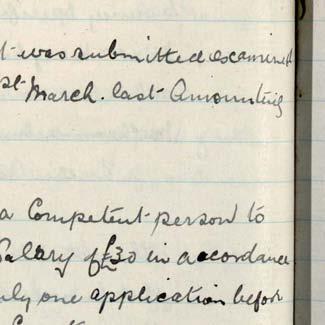 t was submitted examined
st March. last Amounting
a Competent person to
Salary of £30 in accordance
nly one application before